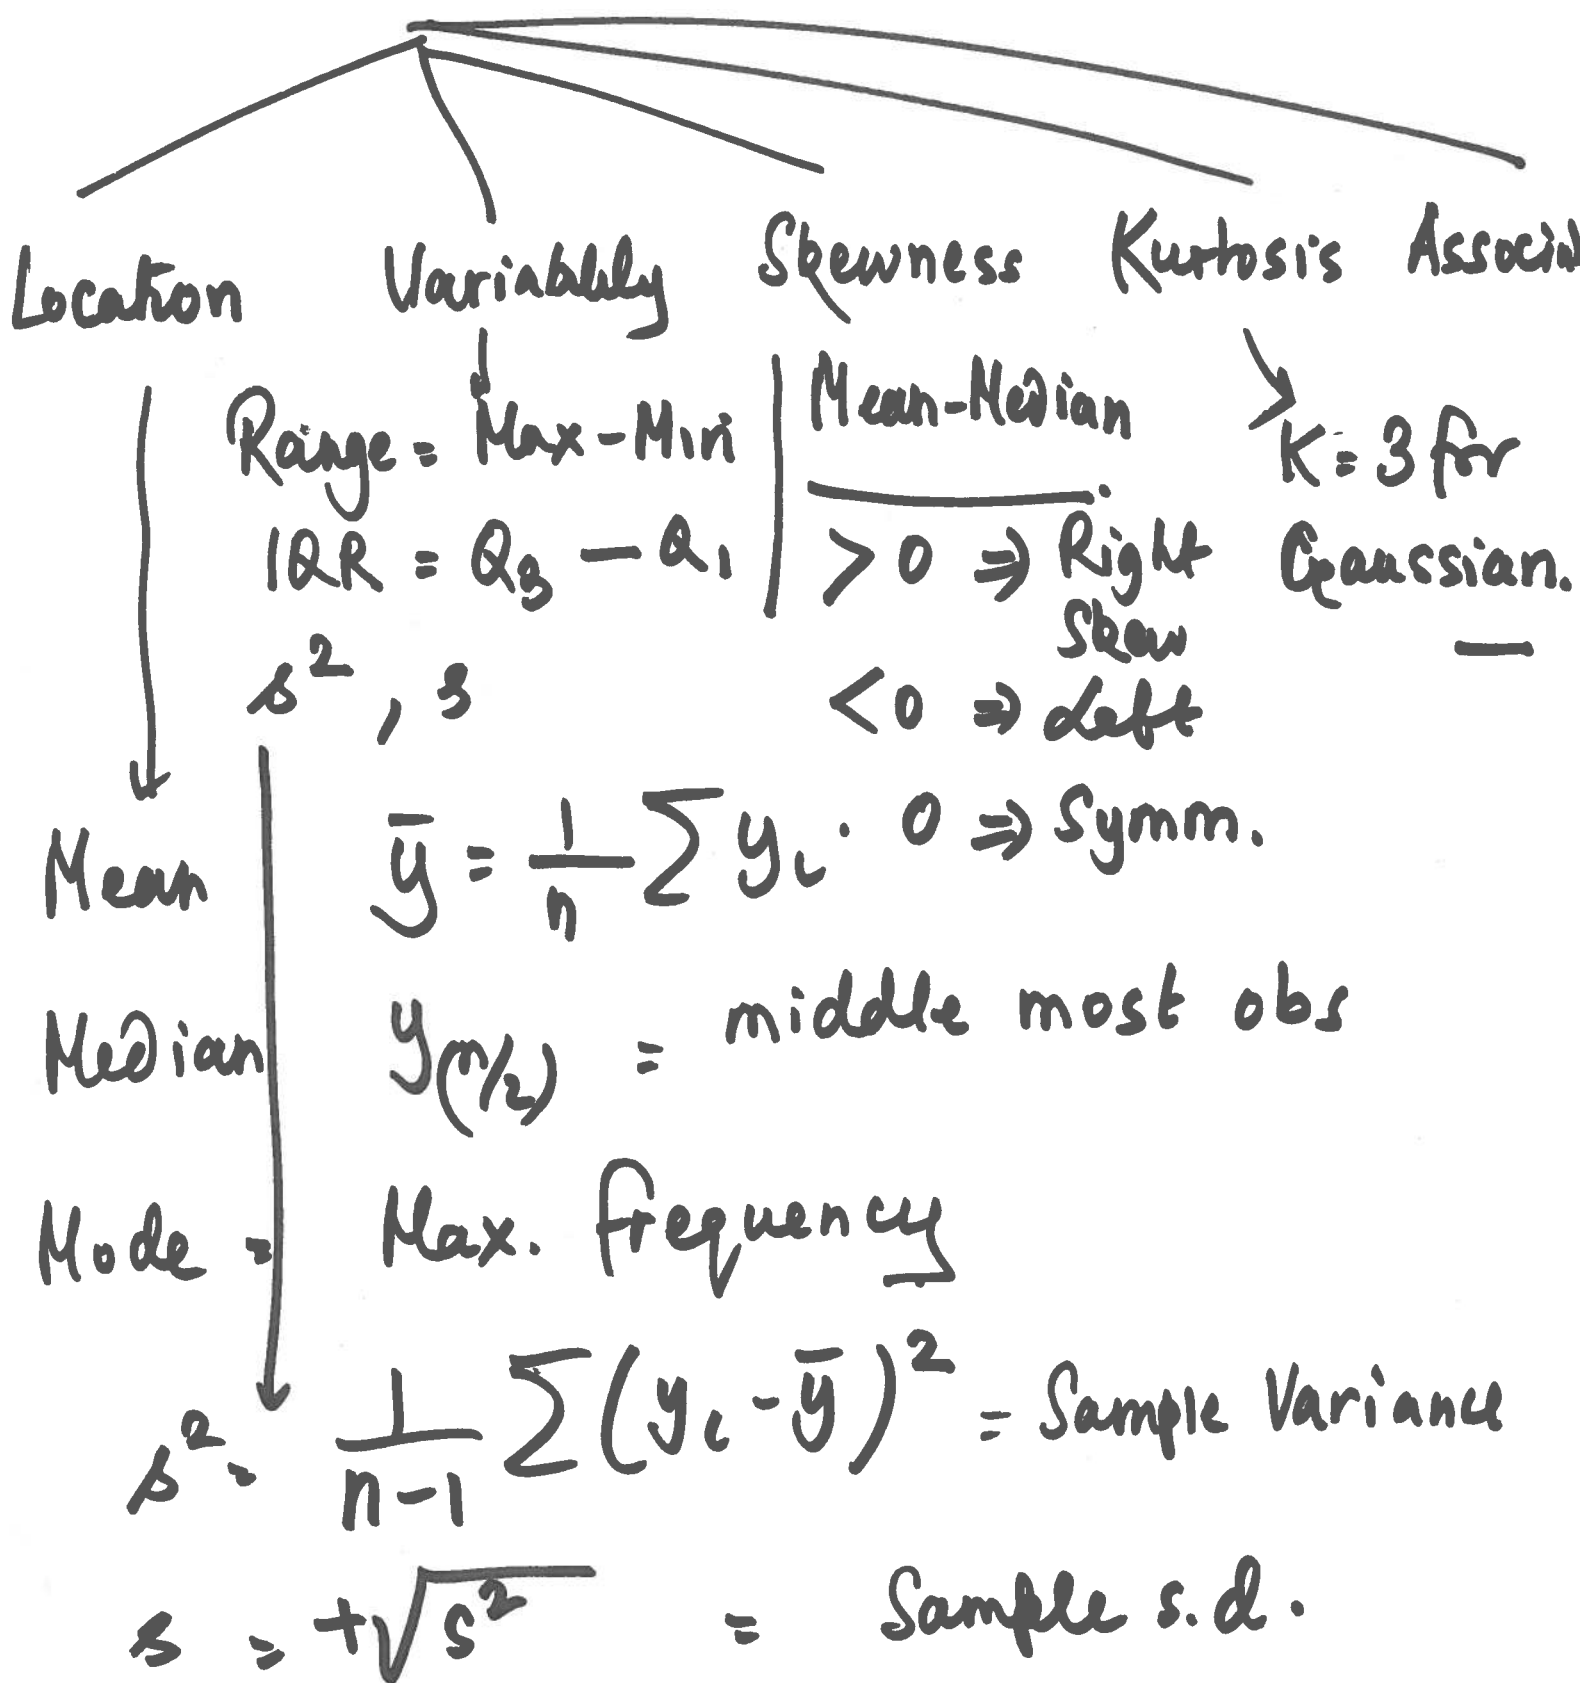 Location Variability Skewness Kurtosis Associa
Range = Max - Min
IQR = Q₃ - Q₁
s², s
Mean-Median
> 0 ⇒ Right
Skew
< 0 ⇒ Left
0 ⇒ Symm.
K = 3 for
Gaussian.
Mean ȳ = 1/n Σ yᵢ.
Median y(n/2) = middle most obs
Mode = Max. frequency
s² = 1/(n-1) Σ(yᵢ - ȳ)² = Sample Variance
s = +√s² = Sample s.d.